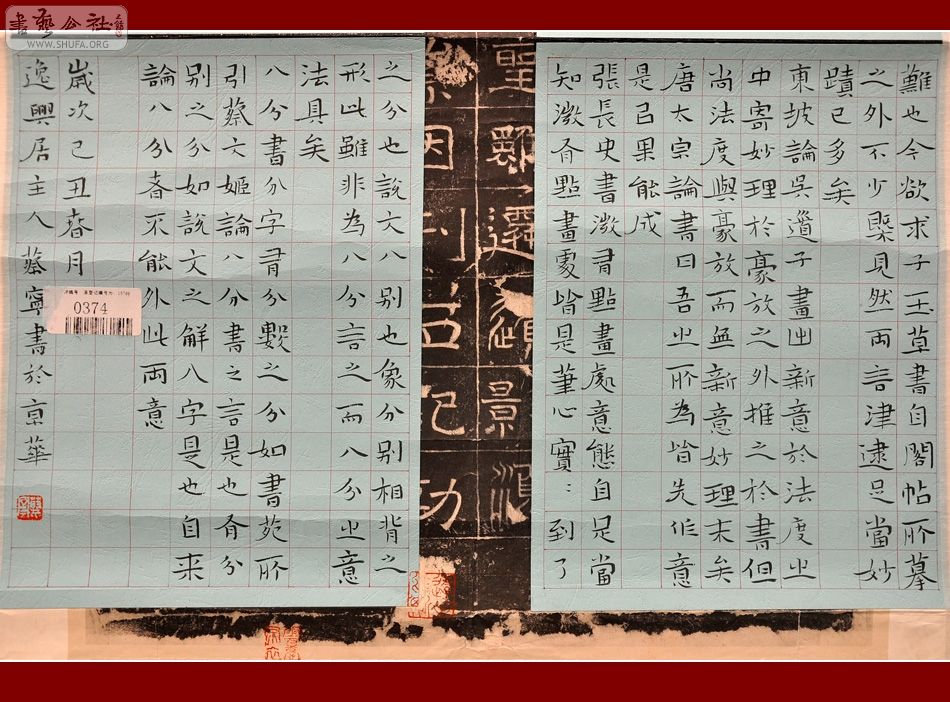 書藝公社
WWW.SHUFA.ORG
難也今欲求子玉草書自閣帖所摹
之外不少槩見然兩言津逮足當妙
蹟已多矣
東坡論吳道子畫出新意於法度之
中寄妙理於豪放之外推之於書但
尚法度與豪放而無新意妙理末矣
唐太宗論書曰吾之所為皆先作意
是已果能成
張長史書微有點畫處意態自足當
知微有點畫處皆是筆心實：到了
聖 遷 景
因 功
之分也說文八別也象分別相背之
形此雖非為八分言之而八分之意
法具矣
八分書分字有分數之分如書苑所
引蔡文姬論八分書之言是也有分
別之分如說文之解八字是也自來
論八分者不能外此兩意
歲次己丑春月
逸興居主人蔡寧書於京華
0374